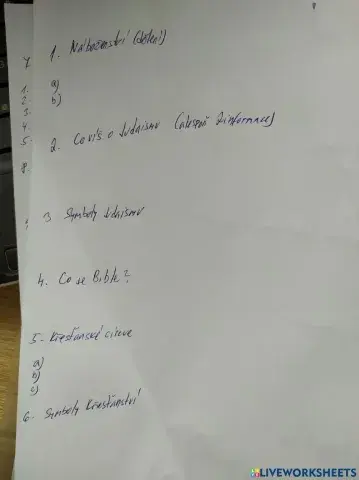 1. Náboženství (dělení)
a)
b)
2. Co víš o Judaismu (alespoň 2 informace)
3 Symboly Judaismu
4. Co je Bible?
5- Křesťanské církve
a)
b)
c)
6. Symboly Křesťanství
7
1.
2.
3.
4.
5.
8.
LIVEWORKSHEETS